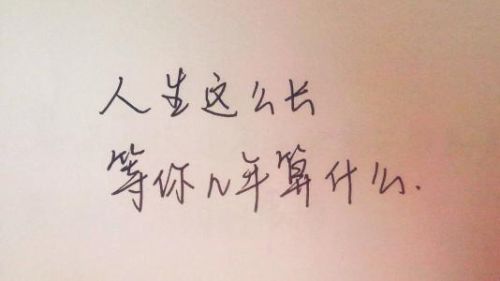 人生这么长
等你几年算什么.